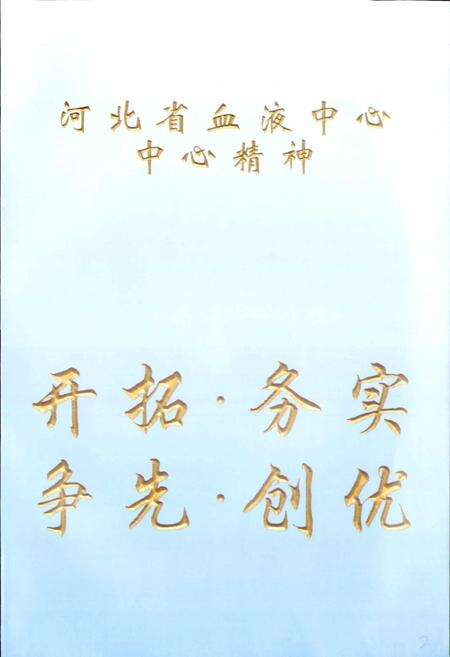 河北省血液中心
中心精神
开拓·务实
争先·创优
2